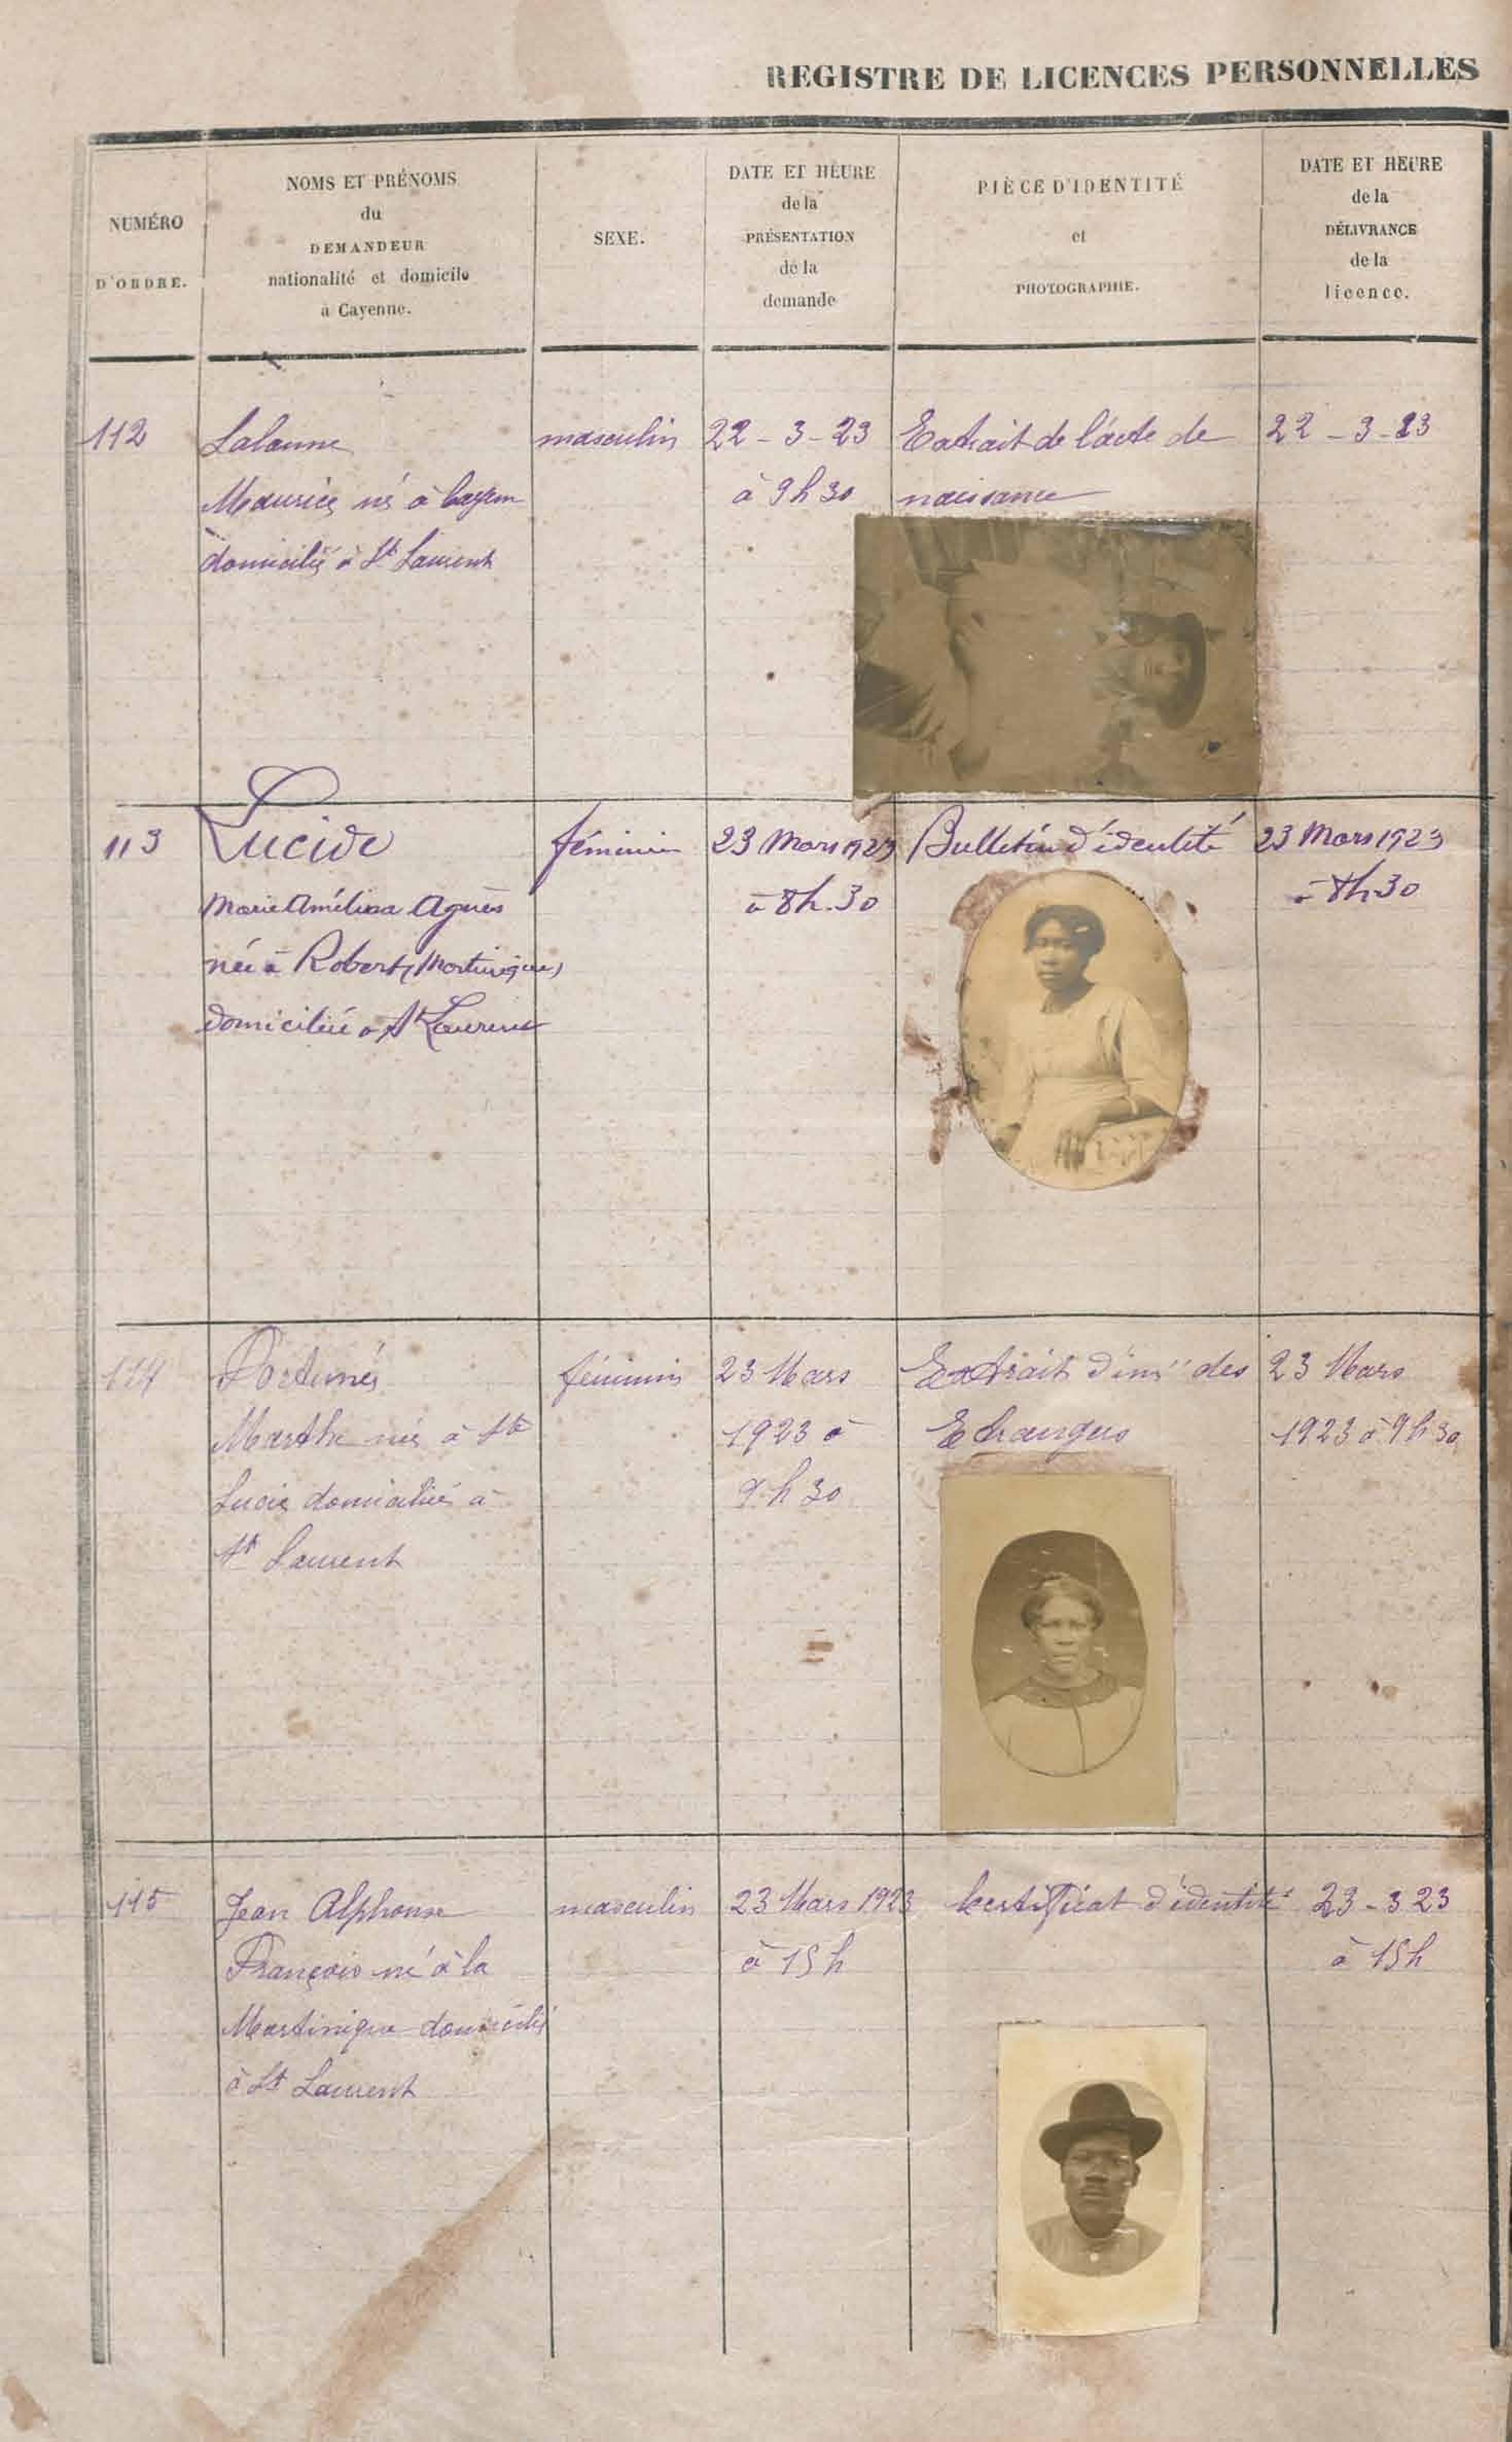 REGISTRE DE LICENCES PERSONNELLES
NUMÉRO
D'ORDRE.
NOMS ET PRÉNOMS
du
DEMANDEUR
nationalité et domicile
à Cayenne.
SEXE.
DATE ET HEURE
de la
PRÉSENTATION
de la
demande
PIÈCE D'IDENTITÉ
et
PHOTOGRAPHIE.
DATE ET HEURE
de la
DÉLIVRANCE
de la
licence.
112
Lalanne
Maurice né à Cayenne
domicilié à St Laurent
masculin
22-3-23
à 9h30
Extrait de l'acte de
naissance
22-3-23
113
Lucide
Marie Amélina Agnès
née à Robert (Martinique)
domiciliée à St Laurent
féminin
23 Mars 1923
à 8h.30
Bulletin d'identité
23 Mars 1923
à 8h30
114
Fortuné
Marthe née à Ste
Lucie domiciliée à
St Laurent
féminin
23 Mars
1923 à
9h30
Extrait d' des
23 Mars
1923 à 9h30
115
Jean Alphonse
François né à la
Martinique domicilié
à St Laurent
masculin
23 Mars 1923
à 15h
Certificat d'identité
23-3 23
à 15h